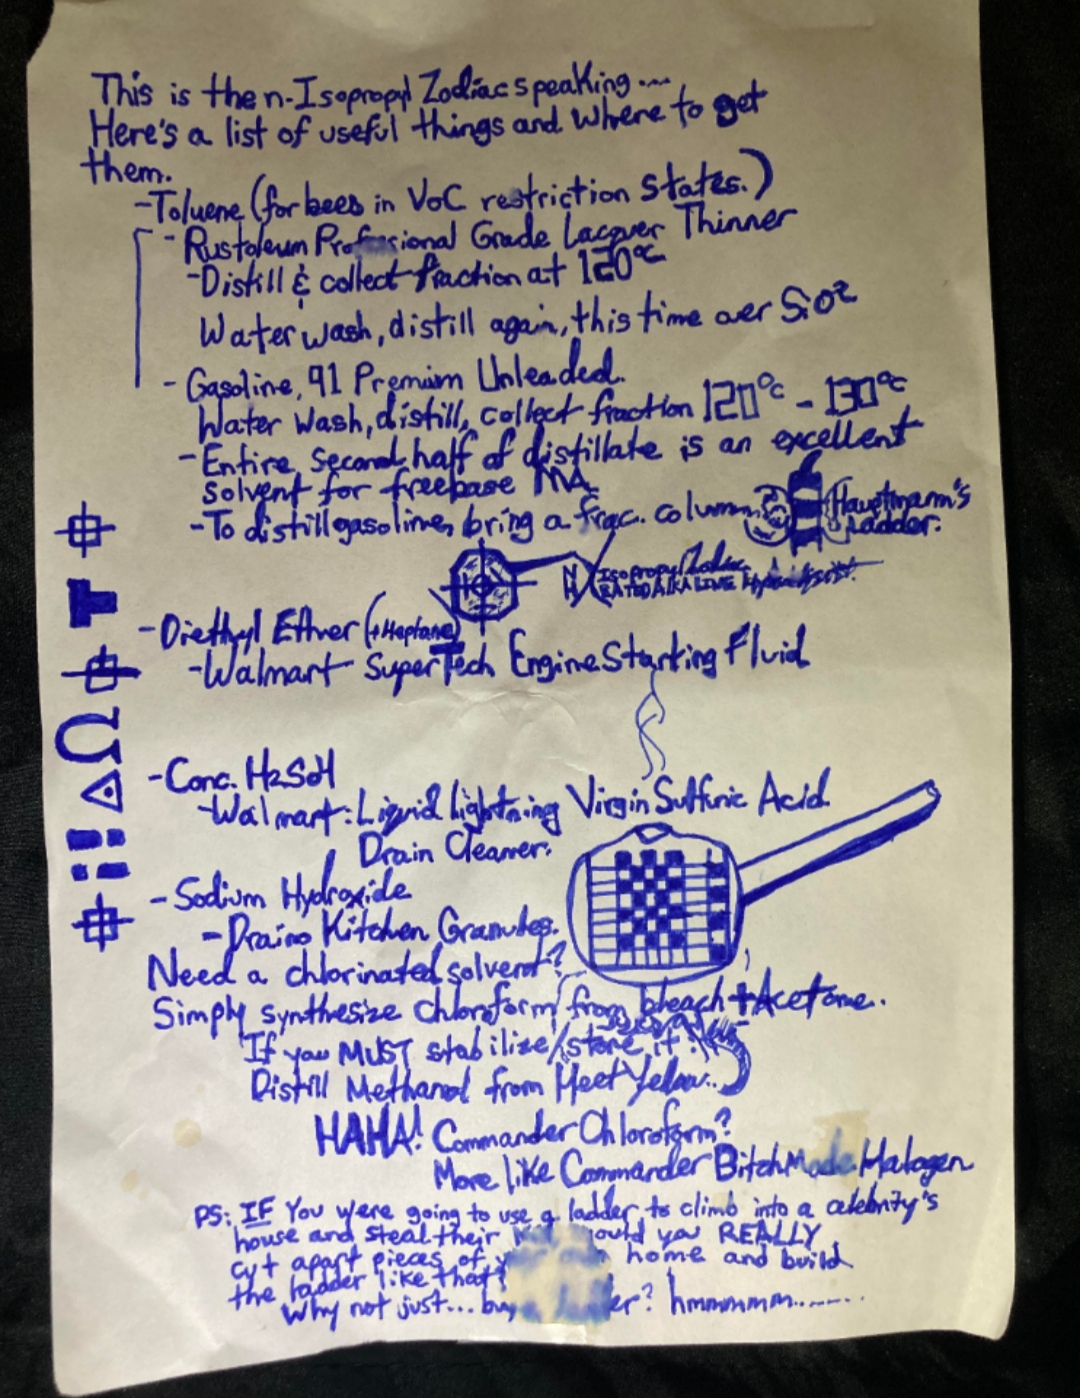 This is the n-Isopropyl Zodiac speaking....
Here's a list of useful things and where to get
them.
-Toluene (for bees in VoC restriction States.)
- Rustoleum Professional Grade Lacquer Thinner
-Distill & collect fraction at 120°C
Water wash, distill again, this time over SiO2
- Gasoline, 91 Premium Unleaded.
Water Wash, distill, collect fraction 120°C - 130°C
-Entire second half of distillate is an excellent
solvent for freebase MA
-To distill gasoline, bring a frac. column.
Hauptmann's
Ladder.
Isopropyl Zodiac
-Diethyl Ether (+Heptane)
-Walmart SuperTech Engine Starting Fluid
-Conc. H2SO4
-Walmart: Liquid Lightning Virgin Sulfuric Acid
Drain Cleaner.
-Sodium Hydroxide
-Draino Kitchen Granules.
Need a chlorinated solvent?
Simply synthesize chloroform from bleach + Acetone.
If you MUST stabilize/store it:
Distill Methanol from Heet Yellow..
HAHA! Commander Chloroform?
More like Commander BitchMade Halogen
PS: IF You were going to use a ladder to climb into a celebrity's
house and steal their would you REALLY
cut apart pieces of home and build
the ladder like that?
Why not just... buy a ladder? hmmmmm.......